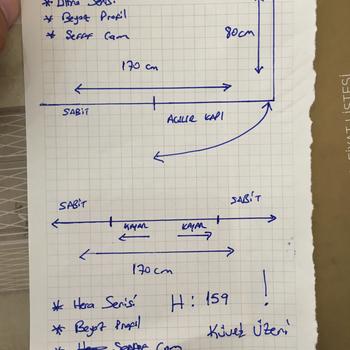 * Beyaz Profil
* Şeffaf Cam
80cm
170 cm
SABİT
AÇILIR KAPI
SABİT
SABİT
KAYAR KAYAR
170cm
* Hera Serisi
H: 159 !
* Beyaz Profil
Küvet Üzeri
FİYAT LİSTESİ